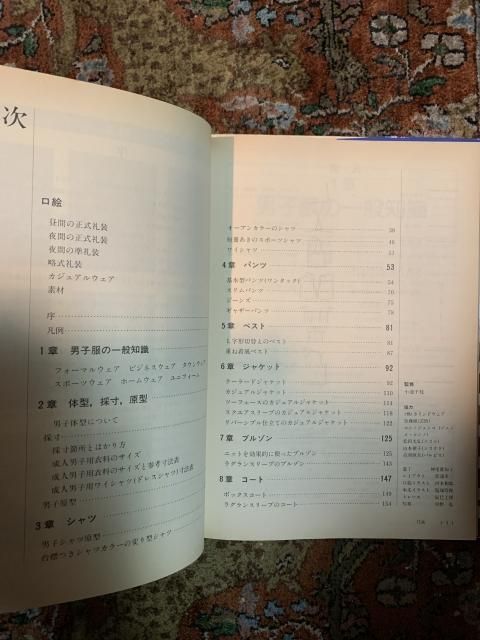 次
口絵
昼間の正式礼装
夜間の正式礼装
夜間の準礼装
略式礼装
カジュアルウェア
素材
序
凡例
1章 男子服の一般知識
フォーマルウェア ビジネスウェア タウンウェア
スポーツウェア ホームウェア ユニフォーム
2章 体型，採寸，原型
男子体型について
採寸
採寸箇所とはかり方
成人男子用衣料のサイズ
成人男子用衣料のサイズと参考寸法表
成人男子用ワイシャツ(ドレスシャツ)寸法表
男子原型
3章 シャツ
男子シャツ原型
台襟つきシャツカラーの変り型シャツ
オープンカラーのシャツ 39
短冊あきのスポーツシャツ 46
ワイシャツ 51
4章 パンツ 53
基本型パンツ(ワンタック) 54
スリムパンツ 70
ジーンズ 75
ギャザーパンツ 78
5章 ベスト 81
切替えのベスト 81
重ね着風ベスト 87
6章 ジャケット 92
テーラードジャケット 92
カジュアルジャケット 110
ツーフェースのカジュアルジャケット 114
スクエアスリーブのカジュアルジャケット 118
リバーシブル仕立てのカジュアルジャケット 122
7章 ブルゾン 125
ニットを効果的に使ったブルゾン 125
ラグランスリーブのブルゾン 143
8章 コート 147
ボックスコート 149
ラグランスリーブのコート 154
監修
小池千枝
協力